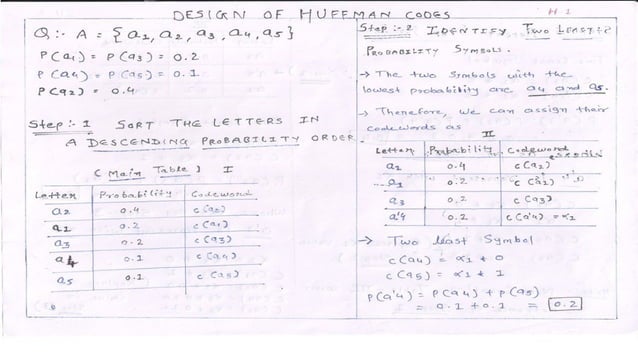 DESIGN OF HUFFMAN CODES
H 1
Q :- A = { a1, a2, a3, a4, a5 }
P(a1) = P(a3) = 0.2
P(a4) = P(a5) = 0.1
P(a2) = 0.4
Step :- 1 SORT THE LETTERS IN
A DESCENDING PROBABILITY ORDER
( Main Table ) I
Letter Probability Codeword
a2 0.4 c(a2)
a1 0.2 c(a1)
a3 0.2 c(a3)
a4 0.1 c(a4)
a5 0.1 c(a5)
Step :- 2 IDENTIFY Two
PROBABILITY SYMBOLS.
→ The two Symbols with the
lowest probability are a4 and a5.
→ Therefore, we can assign their
codewords as
II
Letter Probability Codeword
a2 0.4 c(a2)
a1 0.2 c(a1)
a3 0.2 c(a3)
a'4 0.2 c(a'4) = α1
→ Two least Symbol
c(a4) = α1 * 0
c(a5) = α1 * 1
P(a'4) = P(a4) + P(a5)
= 0.1 + 0.1 = 0.2